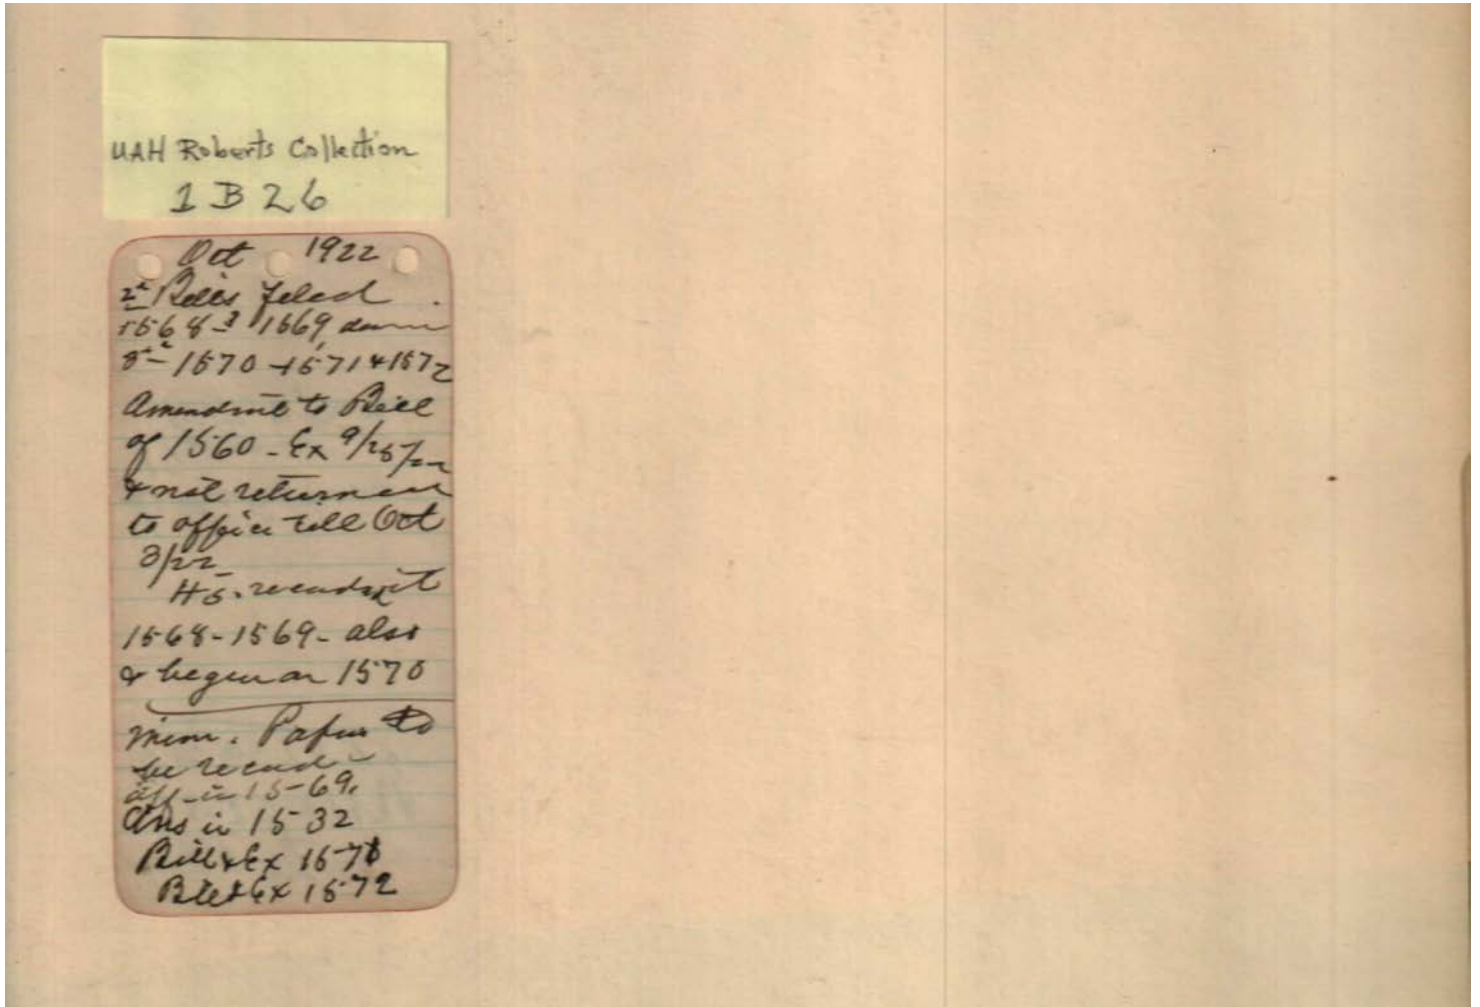 UAH Roberts Collection
1 B 26
Oct 1922
2ᵈ Bills filed
1568 - 3 1569
1570 - 1571 & 1572
Amendmt to Bill
of 1560 - Ex 9/25/22
& not returned
to office till Oct
3/22
H.S.
1568 - 1569 - also
& began on 1570
Mem. Papers to
be record
aff - in 15-69.
Ans in 1532
Bill & Ex 1570
Bill & Ex 1572